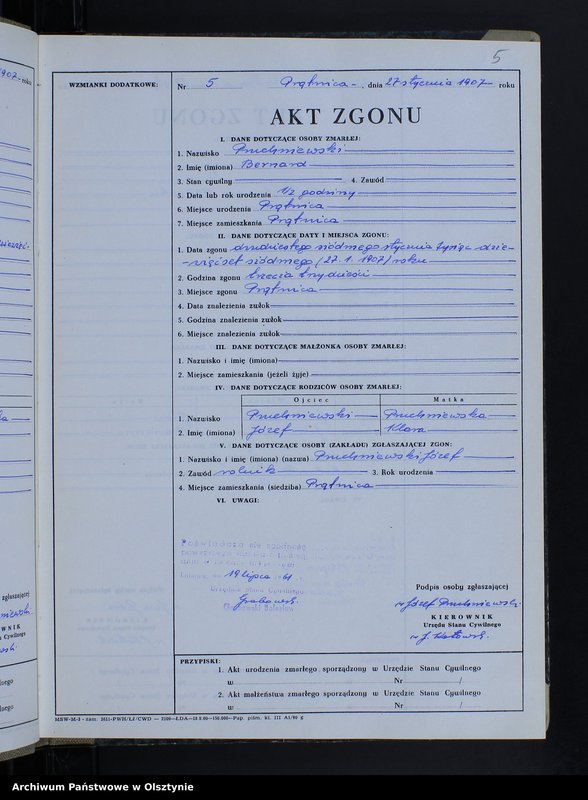 5
WZMIANKI DODATKOWE:
Nr 5 Prątnica, dnia 27 stycznia 1907 roku
AKT ZGONU
I. DANE DOTYCZĄCE OSOBY ZMARŁEJ:
1. Nazwisko Pruchniewski
2. Imię (imiona) Bernard
3. Stan cywilny 4. Zawód
5. Data lub rok urodzenia 1/2 godziny
6. Miejsce urodzenia Prątnica
7. Miejsce zamieszkania Prątnica
II. DANE DOTYCZĄCE DATY I MIEJSCA ZGONU:
1. Data zgonu dwudziestego siódmego stycznia tysiąc dzie-
-więćset siódmego (27.1.1907) roku
2. Godzina zgonu trzecia trzydzieści
3. Miejsce zgonu Prątnica
4. Data znalezienia zwłok
5. Godzina znalezienia zwłok
6. Miejsce znalezienia zwłok
III. DANE DOTYCZĄCE MAŁŻONKA OSOBY ZMARŁEJ:
1. Nazwisko i imię (imiona)
2. Miejsce zamieszkania (jeżeli żyje)
IV. DANE DOTYCZĄCE RODZICÓW OSOBY ZMARŁEJ:
Ojciec Matka
1. Nazwisko Pruchniewski Pruchniewska
2. Imię (imiona) Józef Klara
V. DANE DOTYCZĄCE OSOBY (ZAKŁADU) ZGŁASZAJĄCEJ ZGON:
1. Nazwisko i imię (imiona) (nazwa) Pruchniewski Józef
2. Zawód rolnik 3. Rok urodzenia
4. Miejsce zamieszkania (siedziba) Prątnica
VI. UWAGI:
Poświadcza się zgodność
19 lipca 61
Urzędnik Stanu Cywilnego
Grabowski
Podpis osoby zgłaszającej
Józef Pruchniewski
KIEROWNIK
Urzędu Stanu Cywilnego
PRZYPISKI:
1. Akt urodzenia zmarłego sporządzony w Urzędzie Stanu Cywilnego
w Nr /
2. Akt małżeństwa zmarłego sporządzony w Urzędzie Stanu Cywilnego
w Nr /
Archiwum Państwowe w Olsztynie